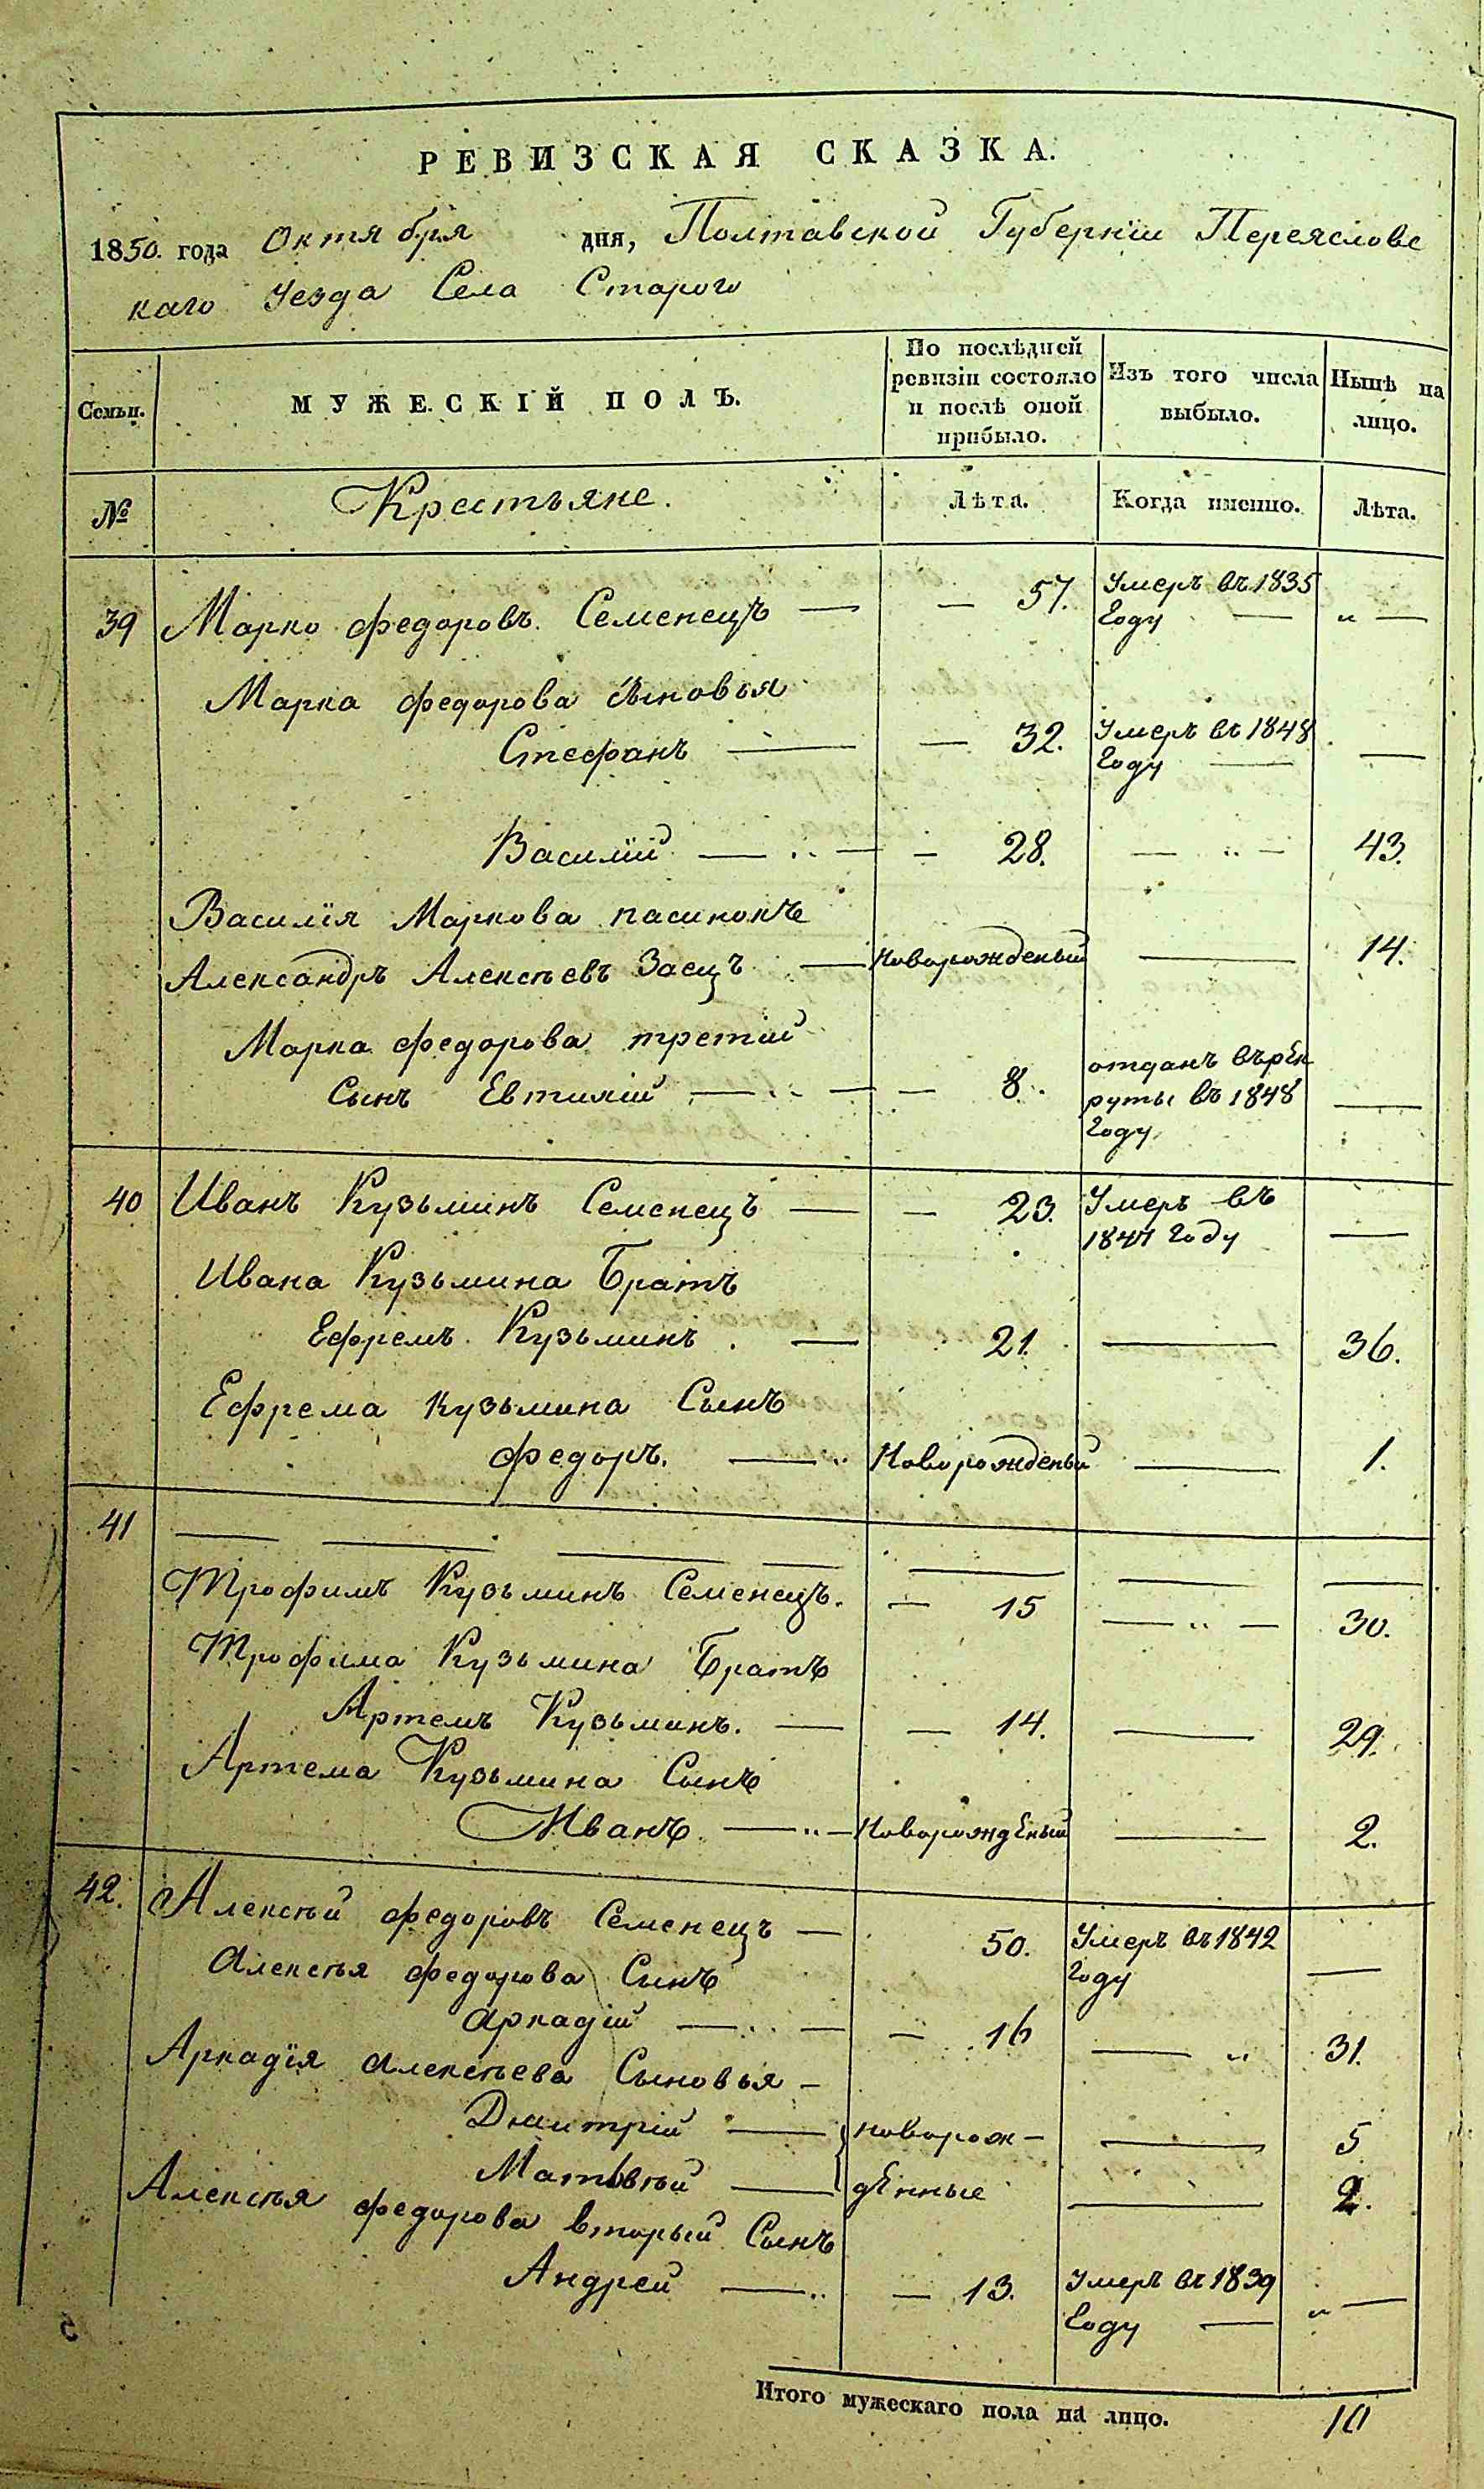 РЕВИЗСКАЯ СКАЗКА.
1850. года Октября дня, Полтавской Губерніи Переяславс
каго Уезда Села Старого
Семьи. МУЖЕСКІЙ ПОЛЪ. По послѣдней ревизіи состояло и послѣ оной прибыло. Изъ того числа выбыло. Нынѣ на лицо.
№ Крестьяне. Лѣта. Когда именно. Лѣта.
39 Марко федоровъ Семенецъ — — 57. Умеръ въ 1835 Году — " —
Марка федорова Сыновья
Стефанъ — — 32. Умеръ въ 1848 Году — —
Василій — " — — 28. — " — 43.
Василія Маркова пасинокъ
Александръ Алексѣевъ Заецъ — Новорожденый — 14.
Марка федорова третій
Сынъ Евтихій — " — — 8. отданъ въ рек
руты въ 1848 Году —
40 Иванъ Кузьминъ Семенецъ — — 23. Умеръ въ
1847 Году —
Ивана Кузьмина Братъ
Ефремъ Кузьминъ . — 21. — 36.
Ефрема Кузьмина Сынъ
федоръ. — " Новорожденый — 1.
41 — — — — — — —
Трофимъ Кузьминъ Семенецъ. — 15 — " — 30.
Трофима Кузьмина Братъ
Артемъ Кузьминъ. — — 14. — 29.
Артема Кузьмина Сынъ
Иванъ — " — Новорожденый — 2.
42. Алексѣй федоровъ Семенецъ — 50. Умеръ въ 1842 Году —
Алексѣя федорова Сынъ
Аркадій — " — — 16 — " 31.
Аркадія Алексѣева Сыновья —
Дмитрій — новорож— — 5
Матвѣй — денные — 2.
Алексѣя федорова вторый Сынъ
Андрей — " — 13. Умеръ въ 1839 Году — " —
Итого мужескаго пола на лицо. 10